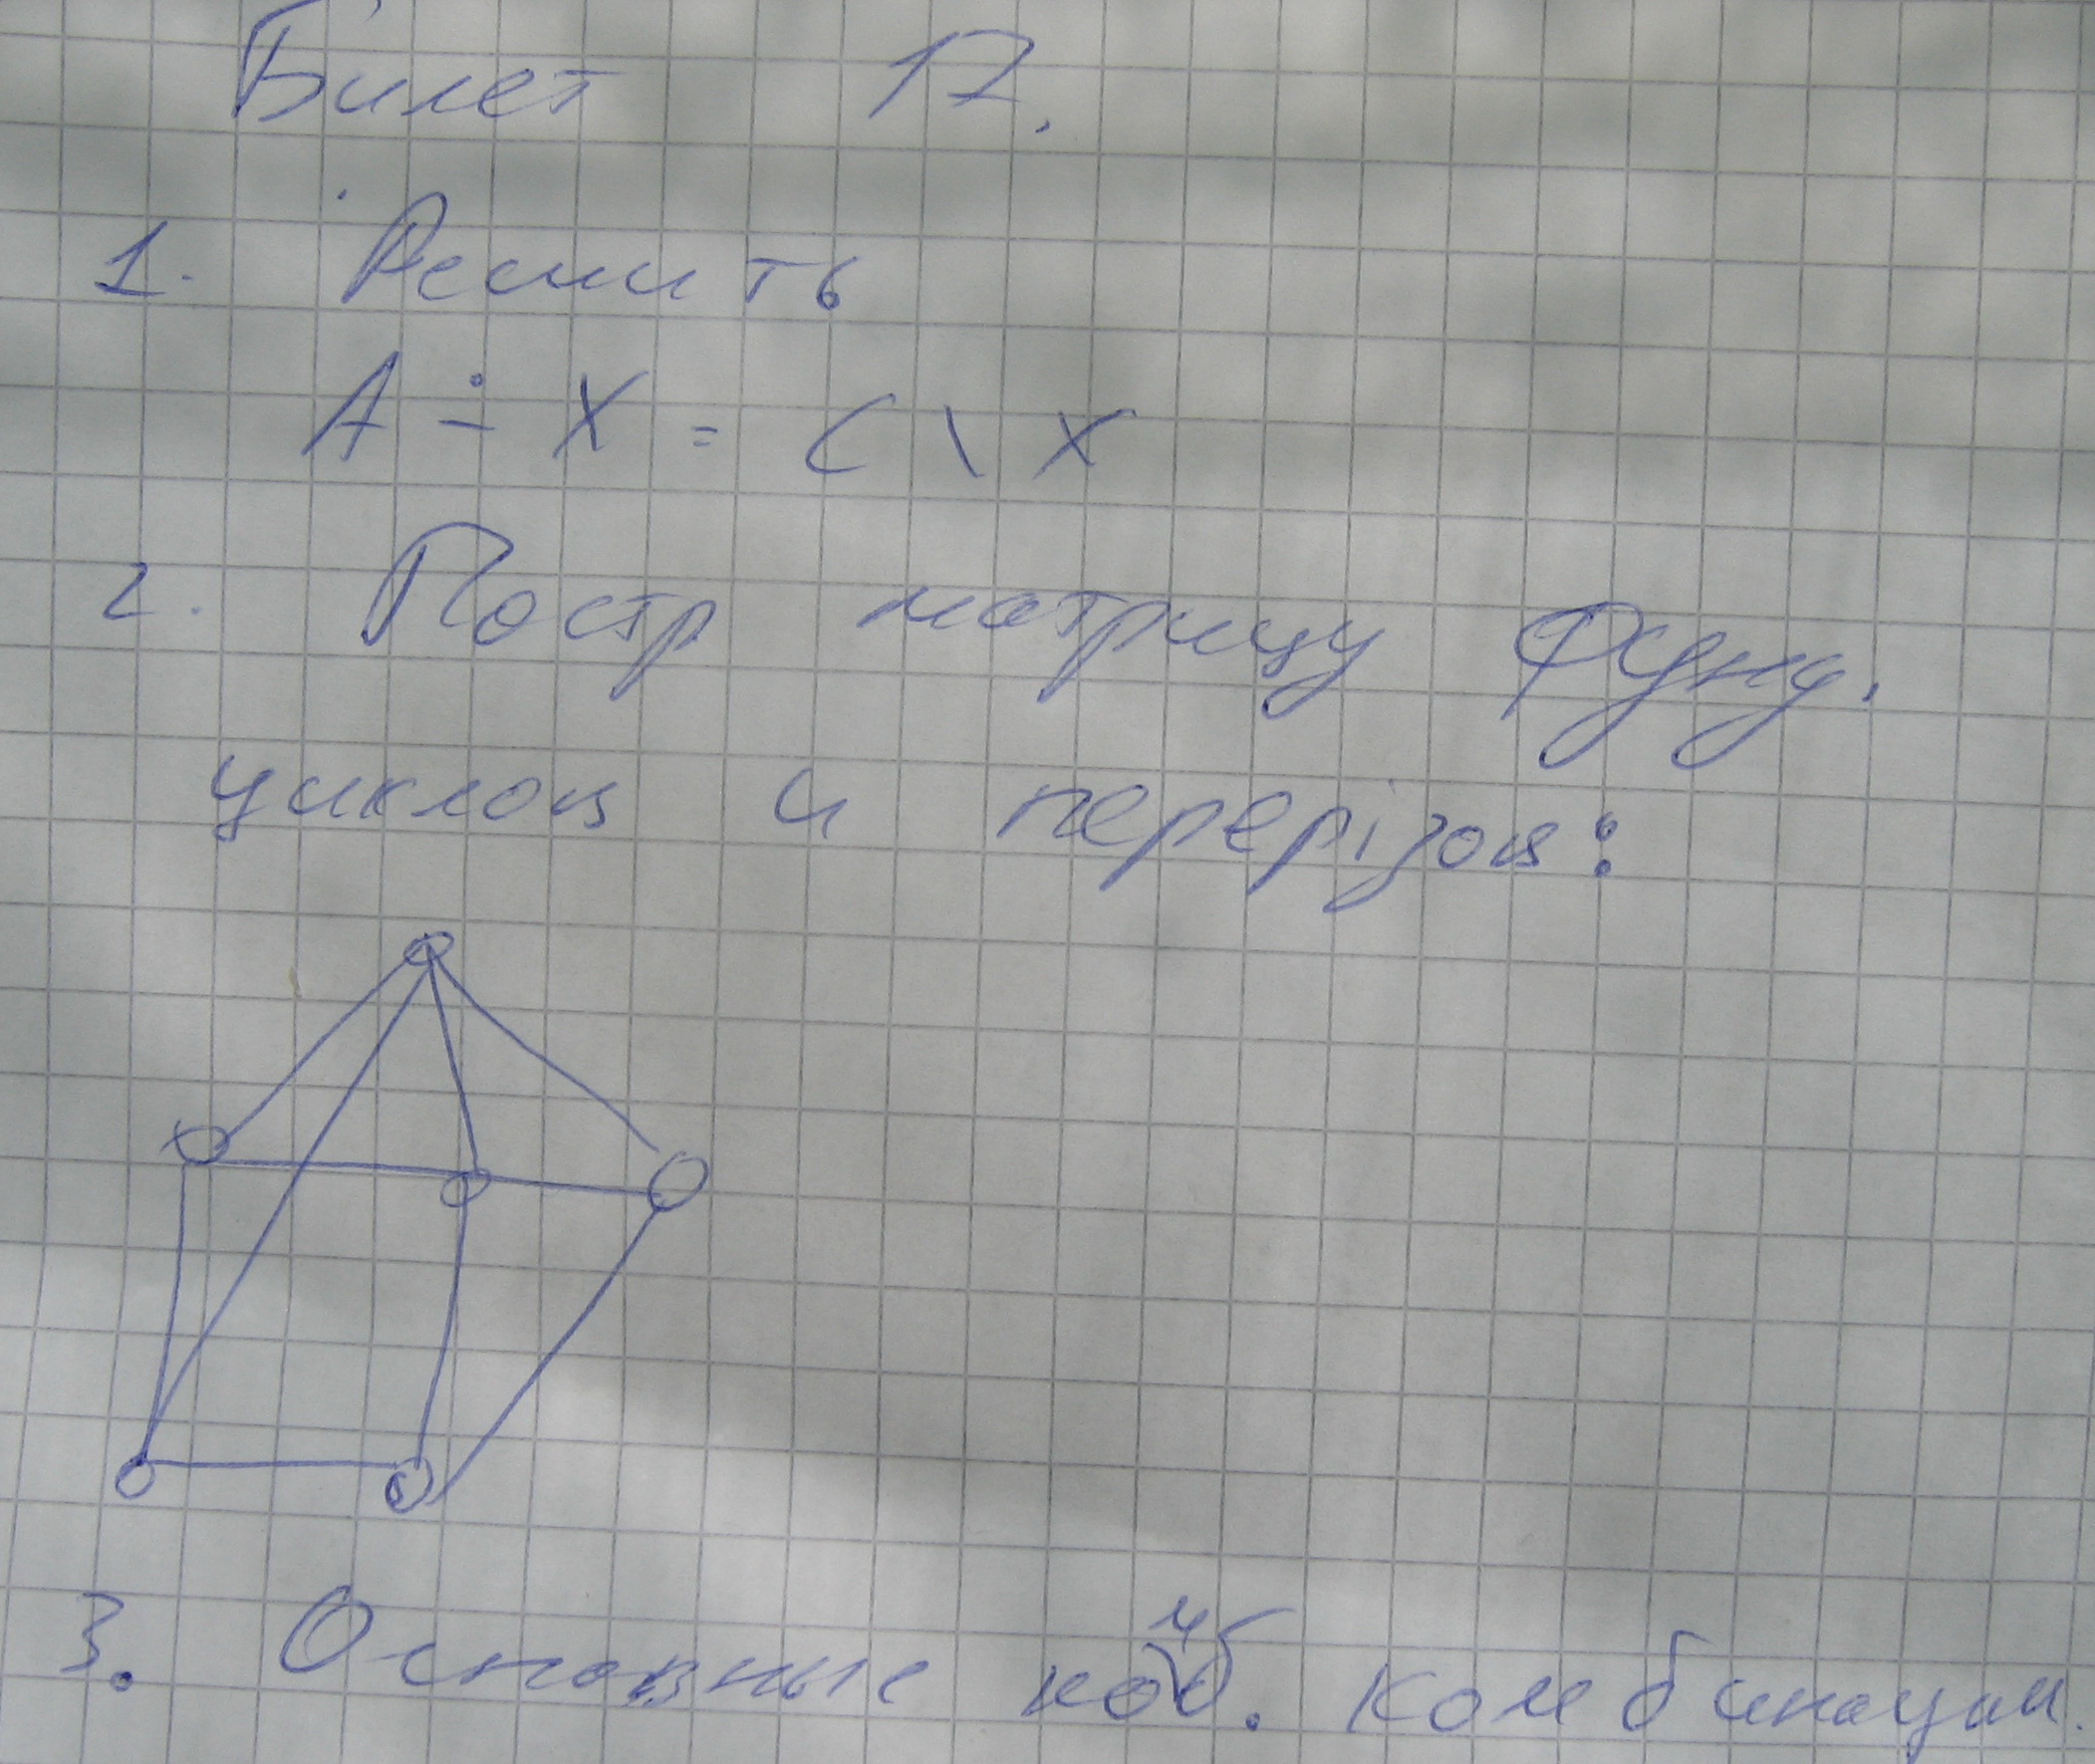 Билет 17.
1. Решить
A ∸ X = C \ X
2. Постр матрицу Фунд.
циклов и перерізов:
3. Основные комб. комбинации.